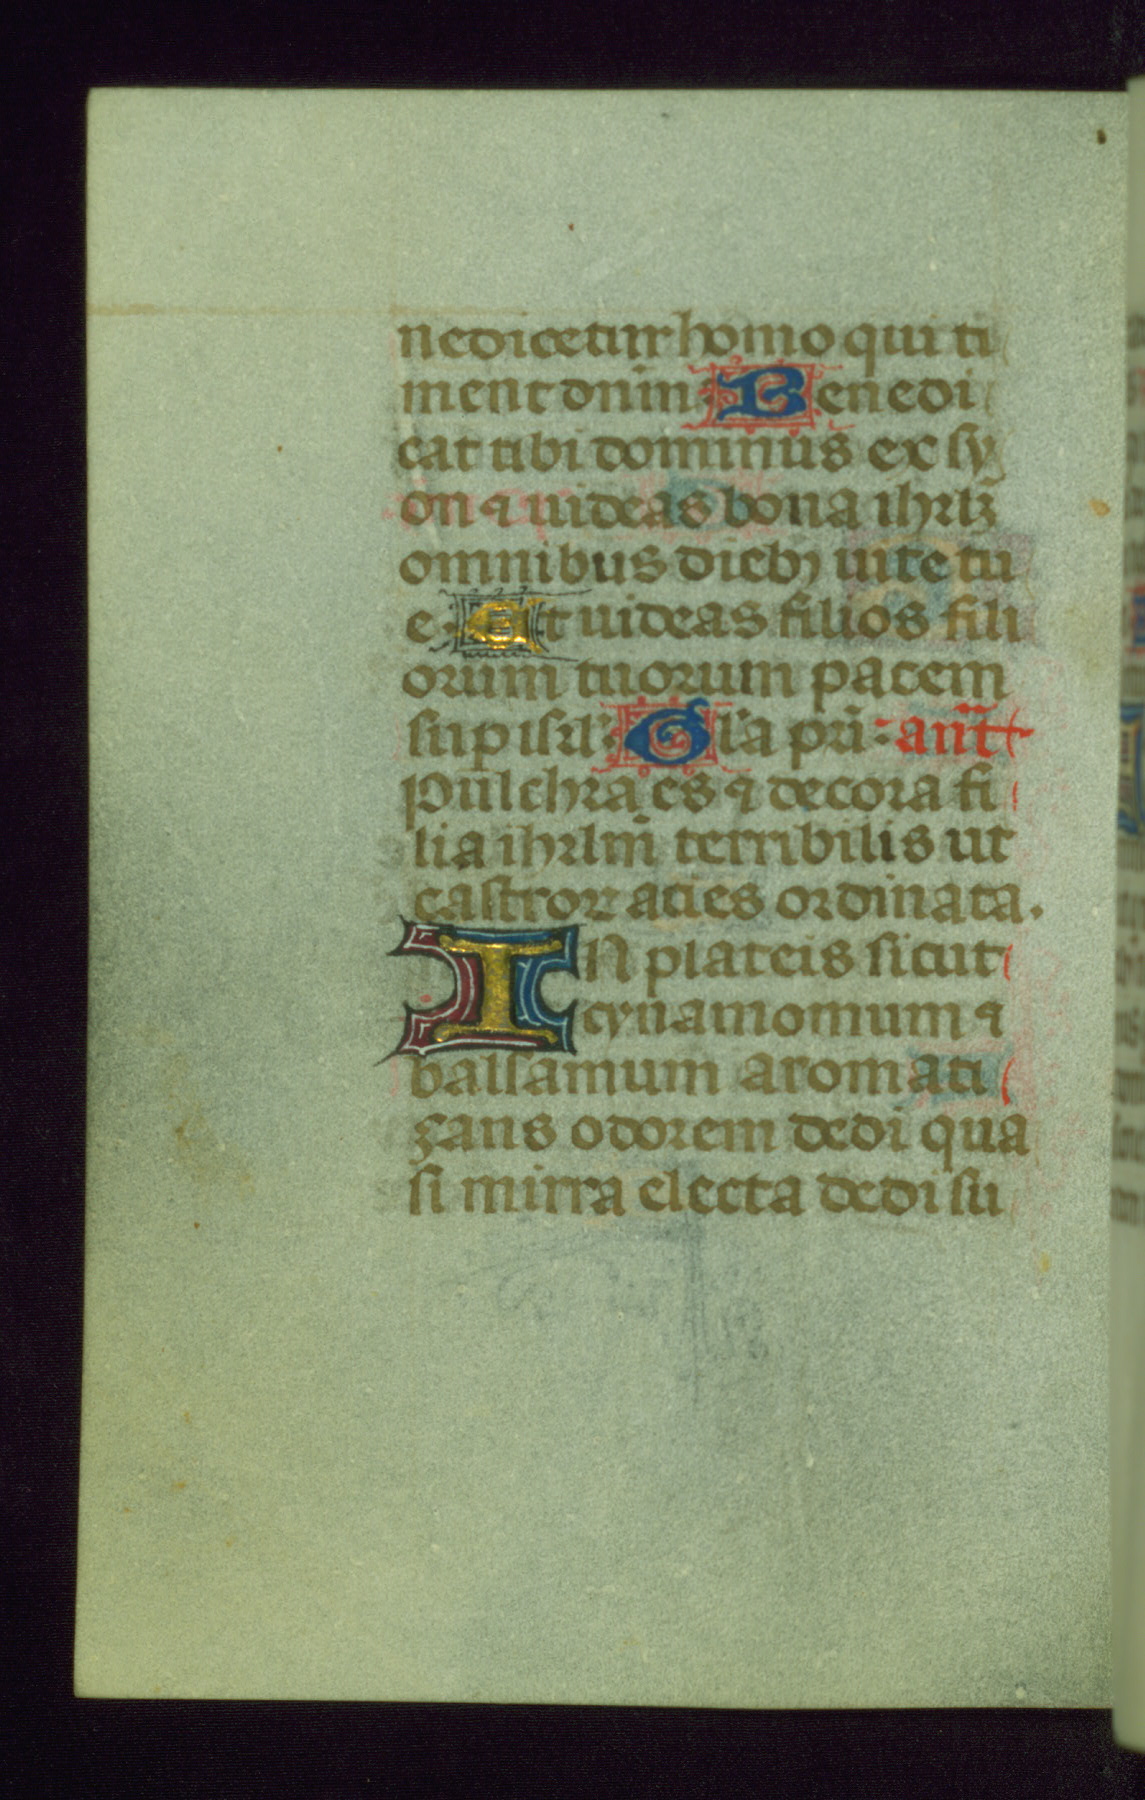 nedicetur homo qui ti
ment dn̄m: Benedi
cat tibi dominus ex sy
on ⁊ uideas bona ihrlz̄
omnibus dieb; uite tu
e: Et uideas filios fili
orum tuorum pacem
sup isrl': Gl'a pr̄i: ant̄
Pulchra es ⁊ decora fi
lia ihrlm̄ terribilis ut
castroꝝ acies ordinata.
IN plateis sicut
cynamomum ⁊
balsamum aromati
zans odorem dedi qua
si mirra electa dedi su